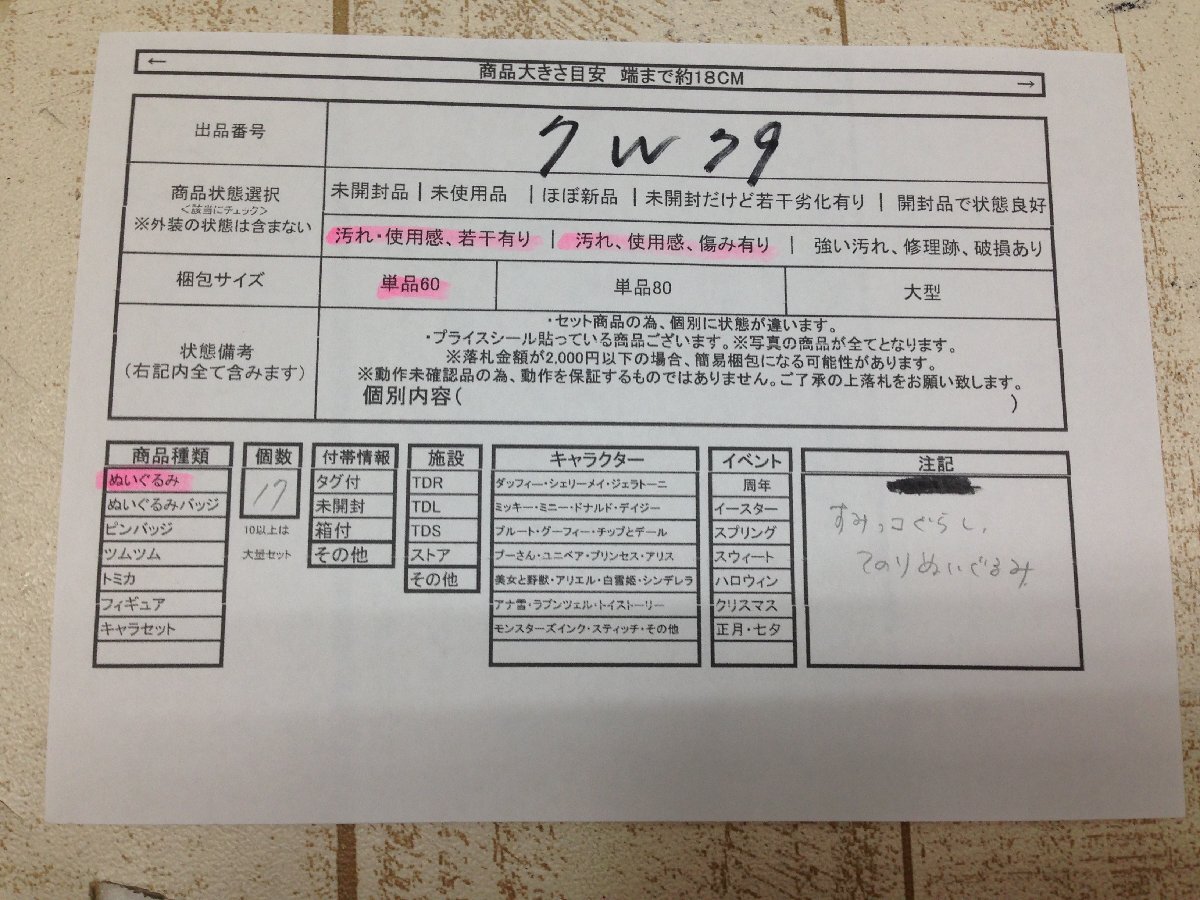 ← 商品大きさ目安 端まで約18CM →
出品番号 7W79
商品状態選択
<該当にチェック>
※外装の状態は含まない
未開封品 | 未使用品 | ほぼ新品 | 未開封だけど若干劣化有り | 開封品で状態良好
汚れ・使用感、若干有り | 汚れ、使用感、傷み有り | 強い汚れ、修理跡、破損あり
梱包サイズ 単品60 単品80 大型
状態備考
(右記内全て含みます)
・セット商品の為、個別に状態が違います。
・プライスシール貼っている商品ございます。※写真の商品が全てとなります。
※落札金額が2,000円以下の場合、簡易梱包になる可能性があります。
※動作未確認品の為、動作を保証するものではありません。ご了承の上落札をお願い致します。
個別内容( )
商品種類
ぬいぐるみ
ぬいぐるみバッジ
ピンバッジ
ツムツム
トミカ
フィギュア
キャラセット
個数
17
10以上は
大量セット
付帯情報
タグ付
未開封
箱付
その他
施設
TDR
TDL
TDS
ストア
その他
キャラクター
ダッフィー・シェリーメイ・ジェラトーニ
ミッキー・ミニー・ドナルド・デイジー
プルート・グーフィー・チップとデール
プーさん・ユニベア・プリンセス・アリス
美女と野獣・アリエル・白雪姫・シンデレラ
アナ雪・ラプンツェル・トイストーリー
モンスターズインク・スティッチ・その他
イベント
周年
イースター
スプリング
スウィート
ハロウィン
クリスマス
正月・七夕
注記
すみっコぐらし、
てのりぬいぐるみ